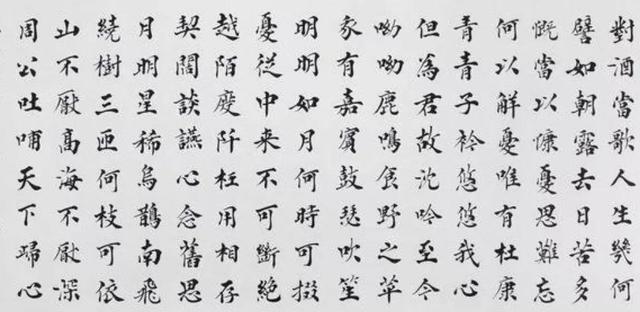 對酒當歌人生幾何
譬如朝露去日苦多
慨當以慷憂思難忘
何以解憂唯有杜康
青青子衿悠悠我心
但為君故沈吟至今
呦呦鹿鳴食野之苹
家有嘉賓鼓瑟吹笙
明明如月何時可掇
憂從中来不可斷絕
越陌度阡枉用相存
契闊談讌心念舊恩
月明星稀烏鵲南飛
繞樹三匝何枝可依
山不厭高海不厭深
周公吐哺天下歸心